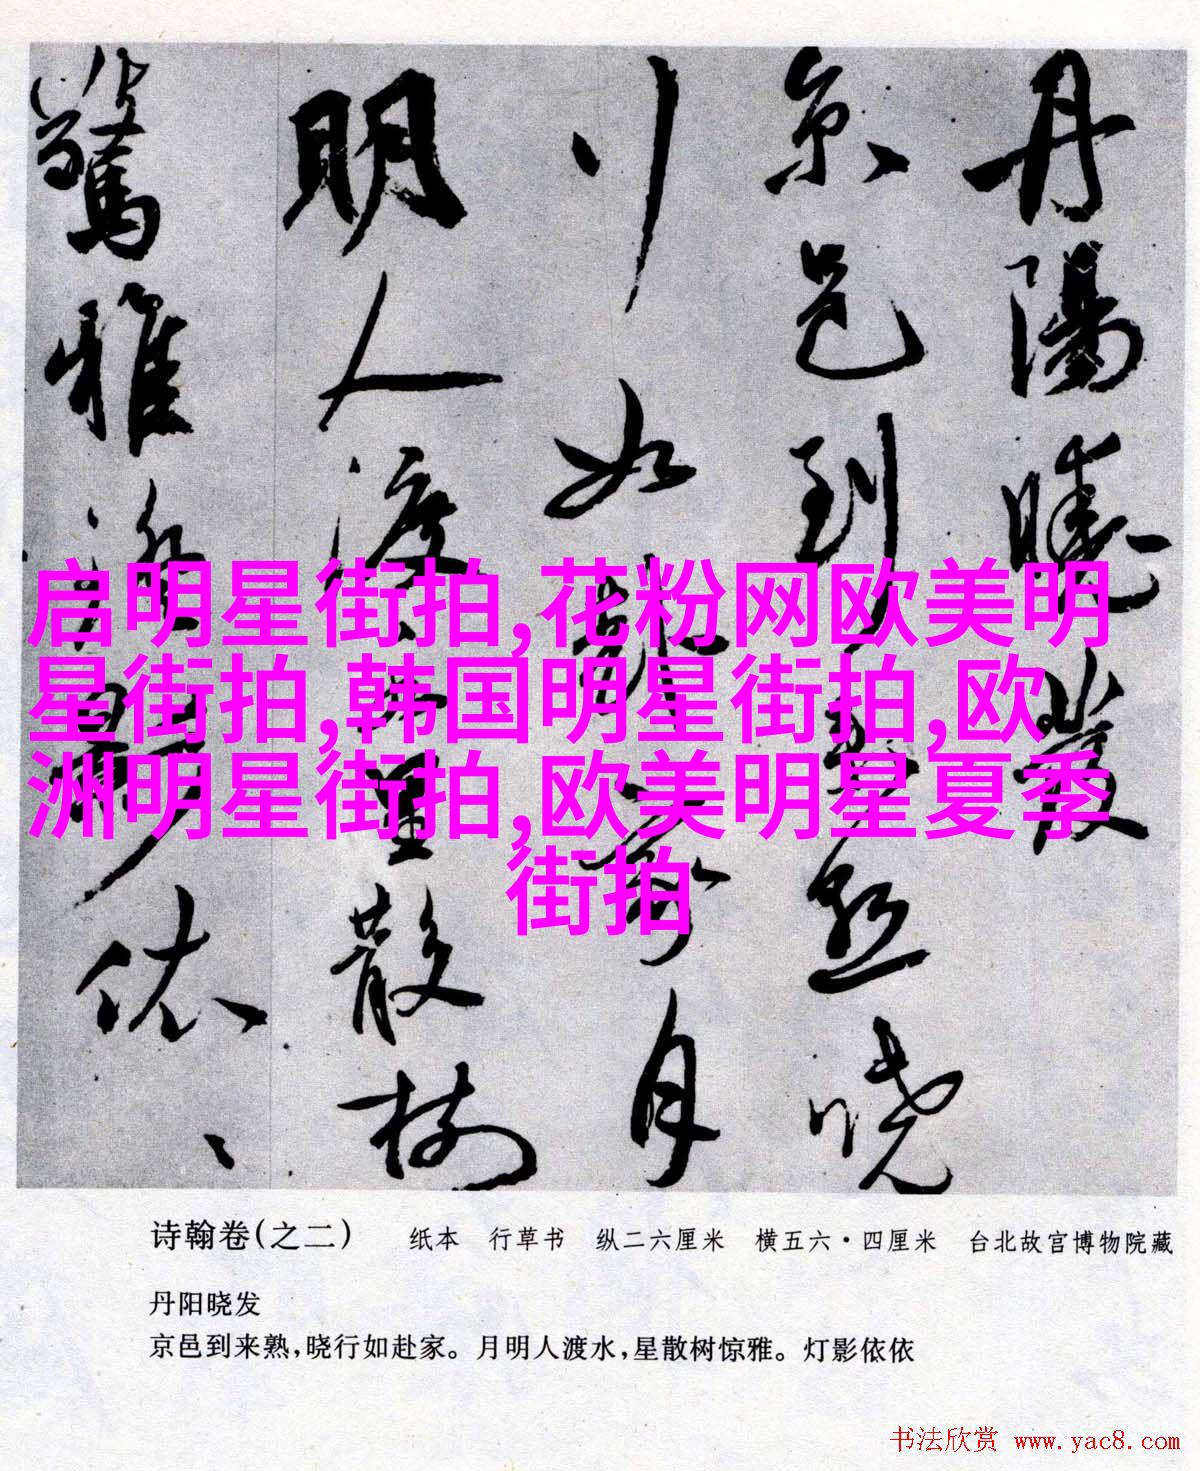 丹陽曉發
京邑到來熟曉
行如赴家月
明人渡水星散樹
驚雅燈影依、
启明星街拍,花粉网欧美明
星街拍,韩国明星街拍,欧
洲明星街拍,欧美明星夏季
街拍
诗翰卷(之二) 纸本 行草书 纵二六厘米 横五六·四厘米 台北故宫博物院藏
丹阳晓发
京邑到来熟,晓行如赴家。月明人渡水,星散树惊雅。灯影依依
书法欣赏 www.yac8.com